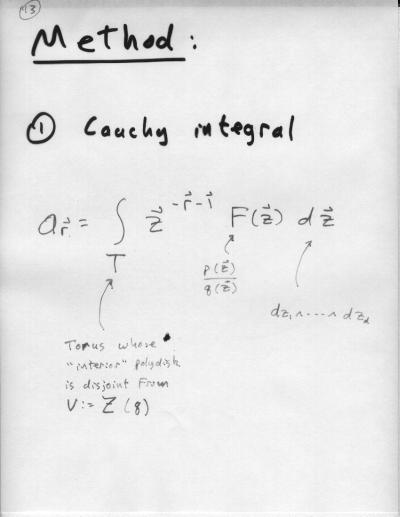 13
Method:
① Cauchy integral
a_r⃗ = ∫_T z⃗^(-r⃗-1⃗) F(z⃗) d z⃗
p(z⃗)
g(z⃗)
dz₁ ∧ ···· ∧ dz_d
Torus whose
"interior" polydisk
is disjoint from
V := Z(g)